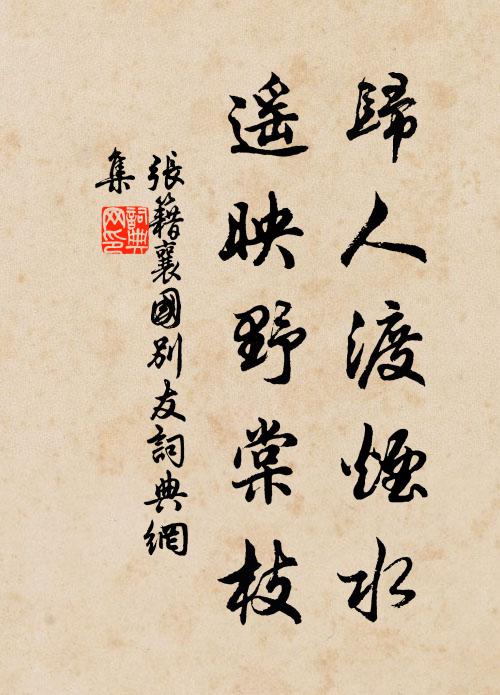 歸人渡煙水
遥映野棠枝
張籍襄國别友詞典網
集
詞典
网印